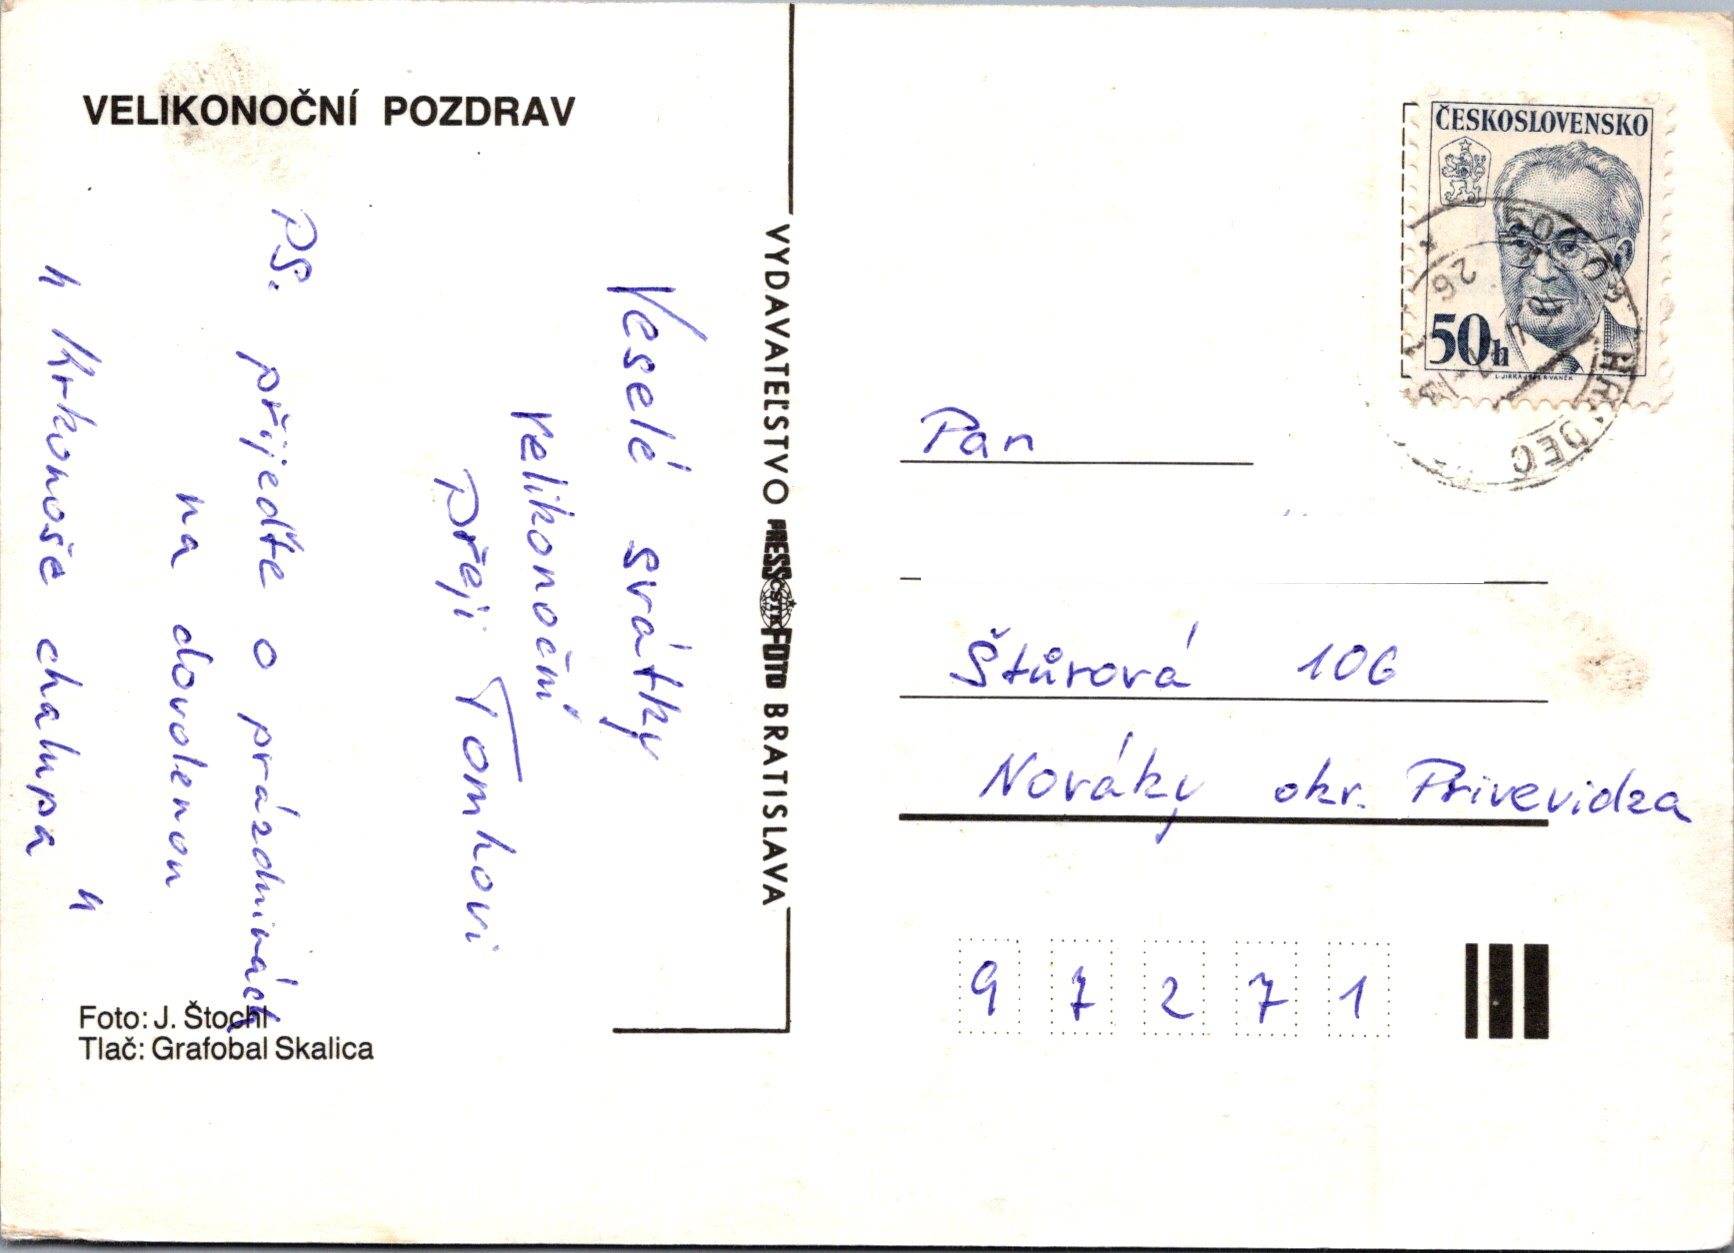 VELIKONOČNÍ POZDRAV
Veselé svátky
velikonoční
přeji Tomkovi
PS. přijeďte o prázdninách
na dovolenou
" Krkonoše chalupa "
Foto: J. Štochl
Tlač: Grafobal Skalica
VYDAVATEĽSTVO PRESSFOTO BRATISLAVA
ČSTK
ČESKOSLOVENSKO
50h
Pan
Štúrová 106
Nováky okr. Prievidza
9 7 2 7 1